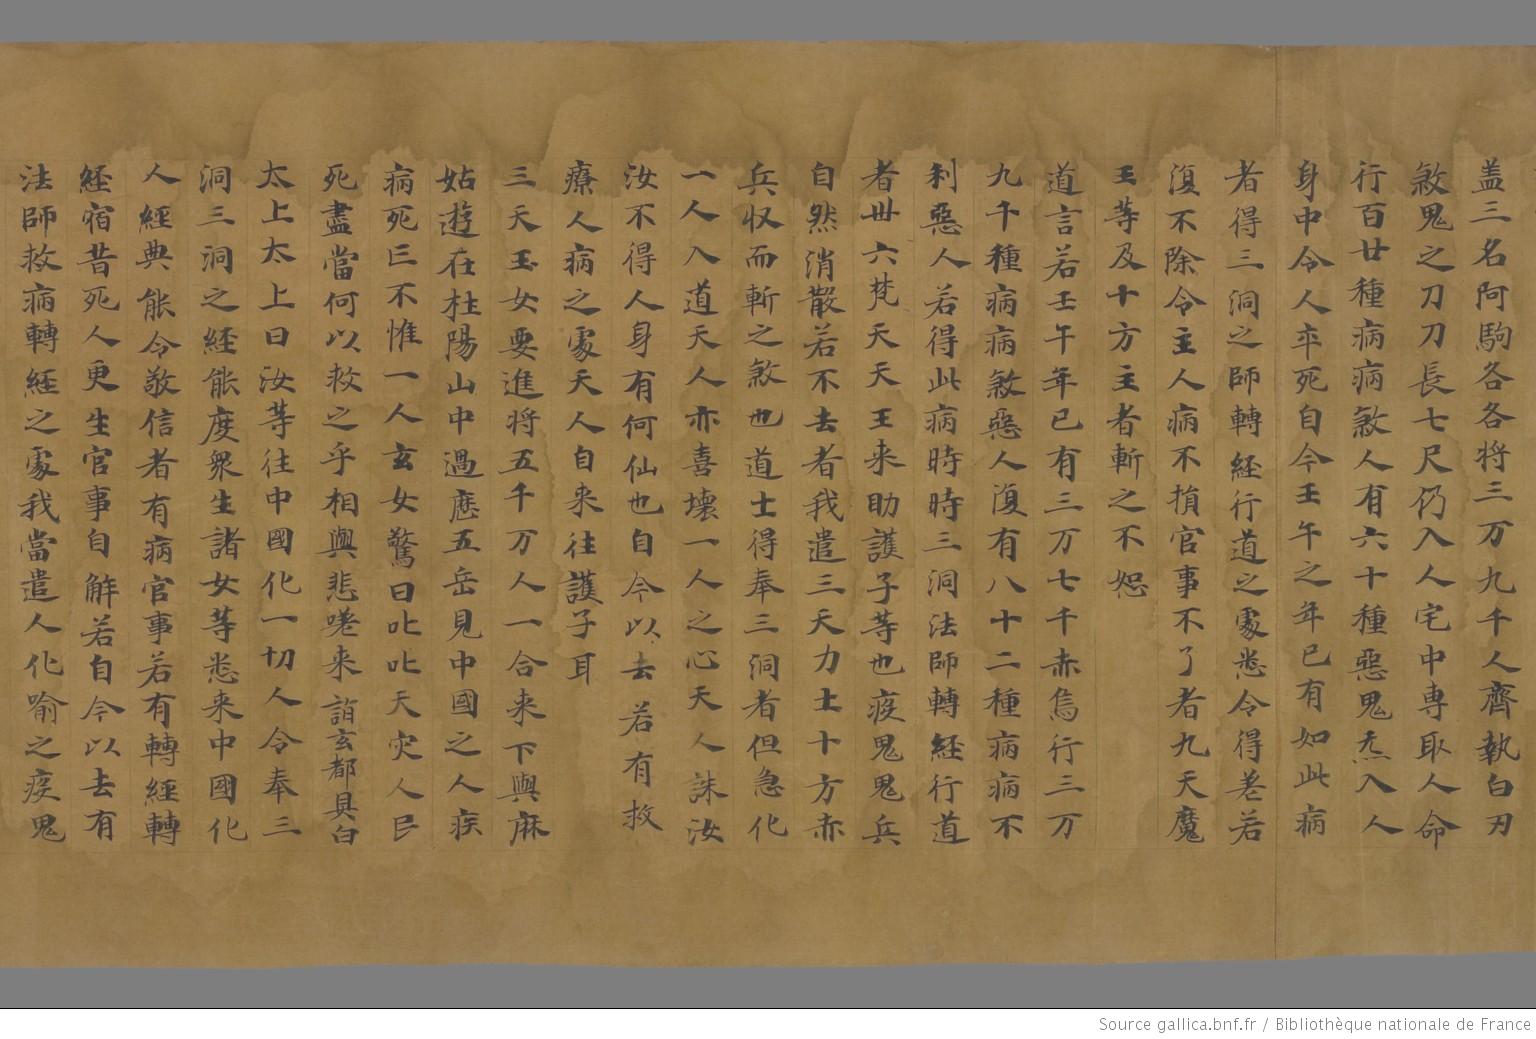 盖三名阿駒各各将三万九千人齊執白刃
煞鬼之刀刀長七尺仍入人宅中専取人命
行百廿種病病煞人有六十種惡鬼炁入人
身中令人卒死自今壬午之年已有如此病
者得三洞之師轉経行道之處悉令得差若
復不除令主人病不損官事不了者九天魔
王等及十方主者斬之不恕
道言若壬午年已有三万七千赤烏行三万
九千種病病煞惡人復有八十二種病病不
利惡人若得此病時時三洞法師轉経行道
者卌六梵天天王来助護子等也疫鬼鬼兵
自然消散若不去者我遣三天力士十方赤
兵収而斬之煞也道士得奉三洞者但急化
一人入道天人亦喜壊一人之心天人誅汝
汝不得人身有何仙也自今以去若有救
療人病之處天人自来往護子耳
三天玉女要進将五千万人一合来下與麻
姑遊在杜陽山中過歴五岳見中國之人疾
病死亡不惟一人玄女驚曰叱叱天灾人民
死盡當何以救之乎相與悲嘆来詣玄都具白
太上太上曰汝等往中國化一切人令奉三
洞三洞之経能度衆生諸女等悉来中國化
人経典能令敬信者有病官事若有轉経轉
経宿昔死人更生官事自解若自今以去有
法師救病轉経之處我當遣人化喻之疾鬼
Source gallica.bnf.fr / Bibliothèque nationale de France